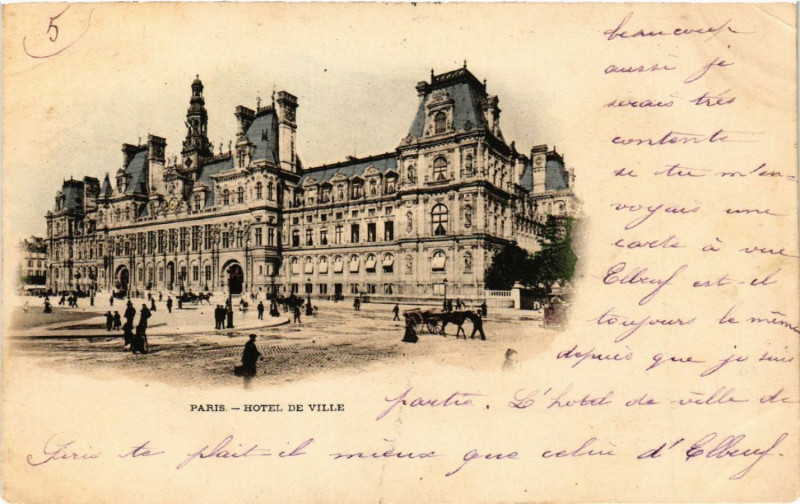 5
beaucoup
aussi je
serais très
contente
si tu m'en-
voyais une
carte à vue
Elbeuf est-il
toujours le même
depuis que je suis
PARIS. — HOTEL DE VILLE
partie. L'hotel de ville de
Paris te plait-il mieux que celui d'Elbeuf.